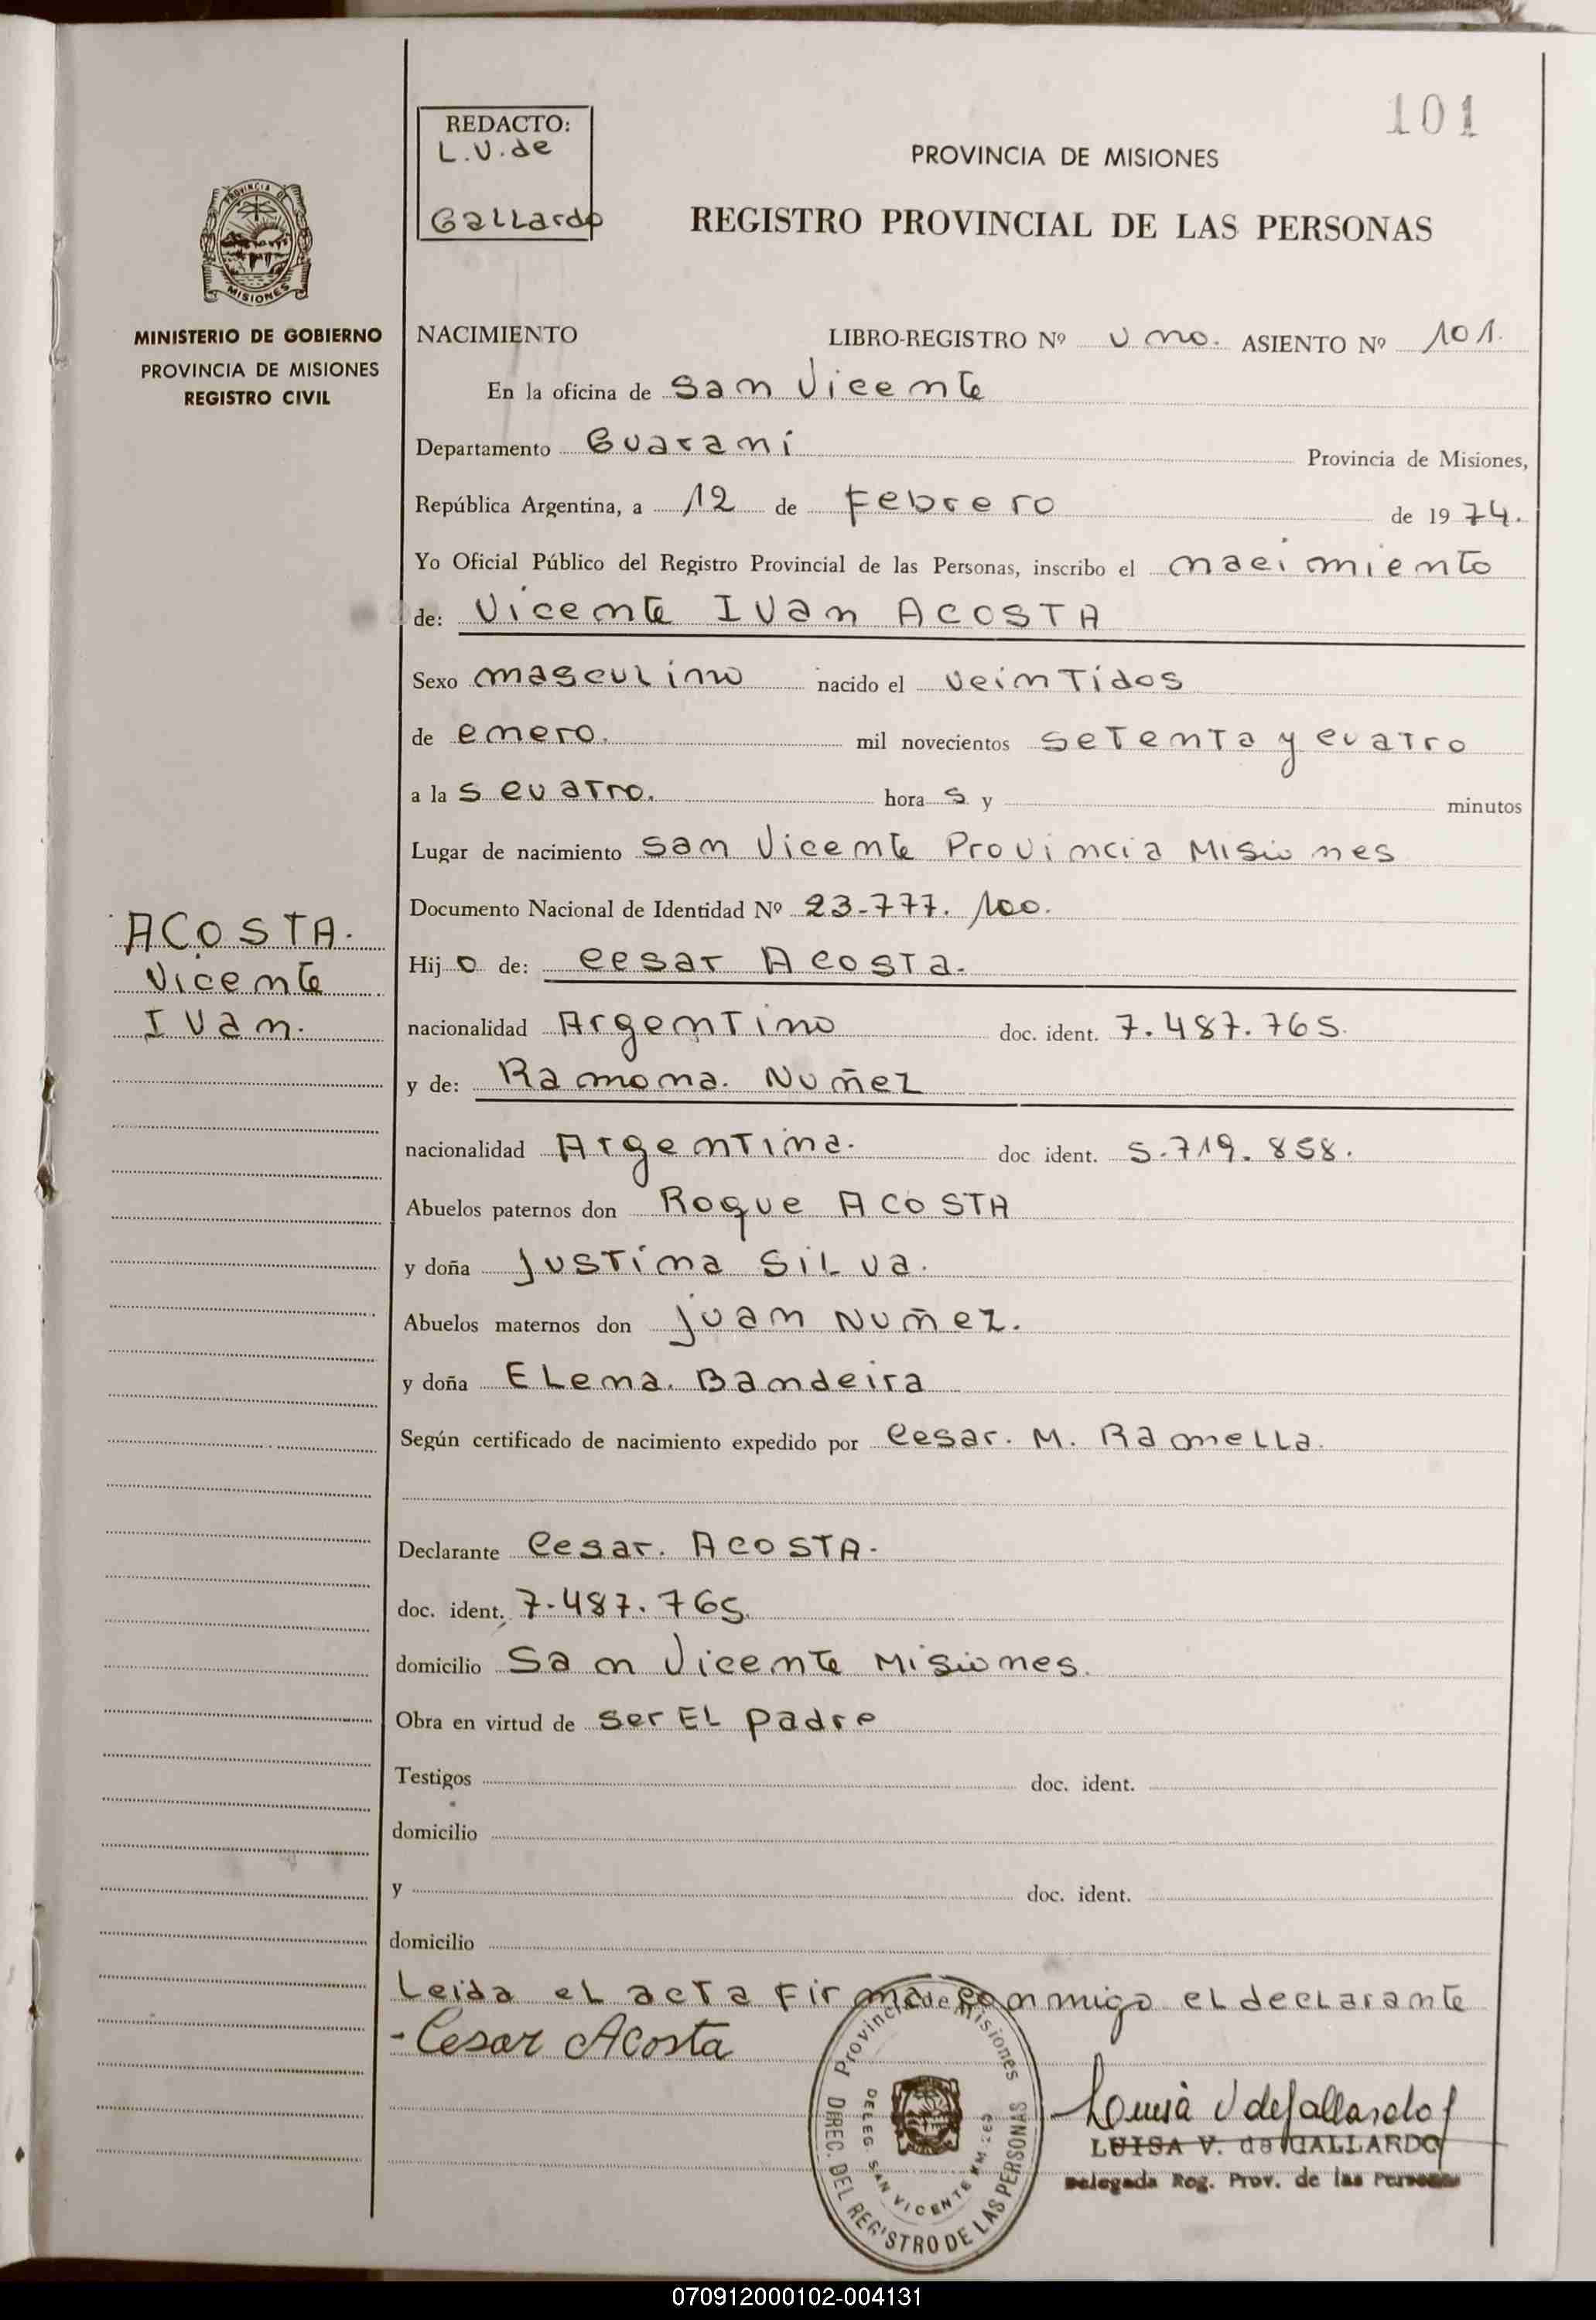 101
REDACTO:
L.V. de
Gallardo
PROVINCIA DE MISIONES
REGISTRO PROVINCIAL DE LAS PERSONAS
PROVINCIA DE
MISIONES
MINISTERIO DE GOBIERNO
PROVINCIA DE MISIONES
REGISTRO CIVIL
NACIMIENTO LIBRO-REGISTRO Nº Uno. ASIENTO Nº 101.
En la oficina de San Vicente
Departamento Guaraní Provincia de Misiones,
República Argentina, a 12 de Febrero de 1974.
Yo Oficial Público del Registro Provincial de las Personas, inscribo el nacimiento
de: Vicente Ivan ACOSTA
Sexo masculino nacido el veintidos
de enero. mil novecientos setenta y cuatro
a las cuatro. horas y minutos
Lugar de nacimiento San Vicente Provincia Misiones
Documento Nacional de Identidad Nº 23-777.100.
ACOSTA.
Vicente
Ivan.
Hijo de: Cesar Acosta.
nacionalidad Argentino doc. ident. 7.487.765.
y de: Ramona. Nuñez
nacionalidad Argentina. doc ident. 5.719.858.
Abuelos paternos don Roque ACOSTA
y doña Justina Silva.
Abuelos maternos don Juan Nuñez.
y doña Elena. Bandeira
Según certificado de nacimiento expedido por Cesar. M. Ramella.
Declarante Cesar. ACOSTA.
doc. ident. 7.487.765.
domicilio San Vicente Misiones.
Obra en virtud de ser El padre
Testigos doc. ident.
domicilio
y doc. ident.
domicilio
Leida el acta firma conmigo el declarante
- Cesar Acosta
Provincia de Misiones
DIREC. DEL REGISTRO DE LAS PERSONAS
DELEG. SAN VICENTE
Luisa V de Gallardo
LUISA V. de GALLARDO
Delegada Reg. Prov. de las Personas
070912000102-004131